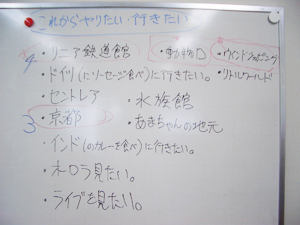 これからやりたい・行きたい
4 ・リニア鉄道館
・動物園
・ウインドウショッピング
・ドイツ(にソーセージ食べ)に行きたい。
・リトルワールド
・セントレア
・水族館
3 ・京都
・あきちゃんの地元
・インド(のカレーを食べ)に行きたい。
・オーロラ見たい。
・ライブを見たい。